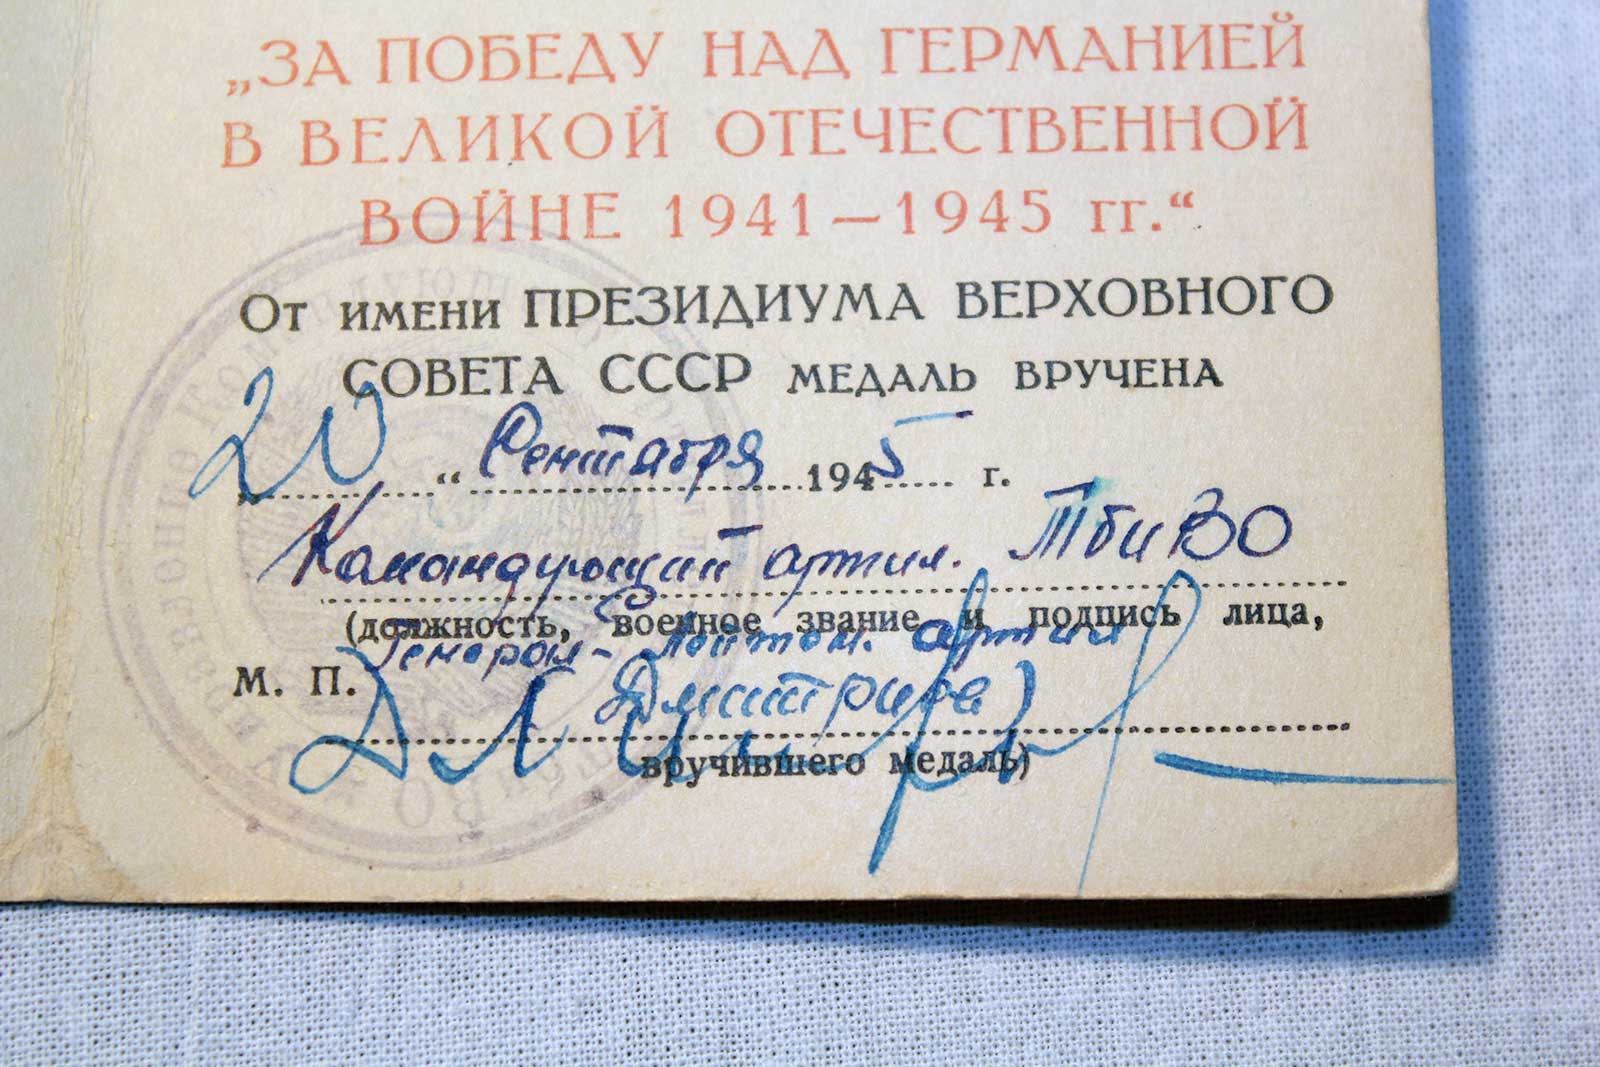 „ЗА ПОБЕДУ НАД ГЕРМАНИЕЙ
В ВЕЛИКОЙ ОТЕЧЕСТВЕННОЙ
ВОЙНЕ 1941—1945 гг.“
От имени ПРЕЗИДИУМА ВЕРХОВНОГО
СОВЕТА СССР медаль вручена
20 “ Сентября 1945 г.
Командующий артил. ТбиВО
(должность, военное звание и подпись лица,
Генерал-лейтен. артил
М. П.
вручившего медаль)